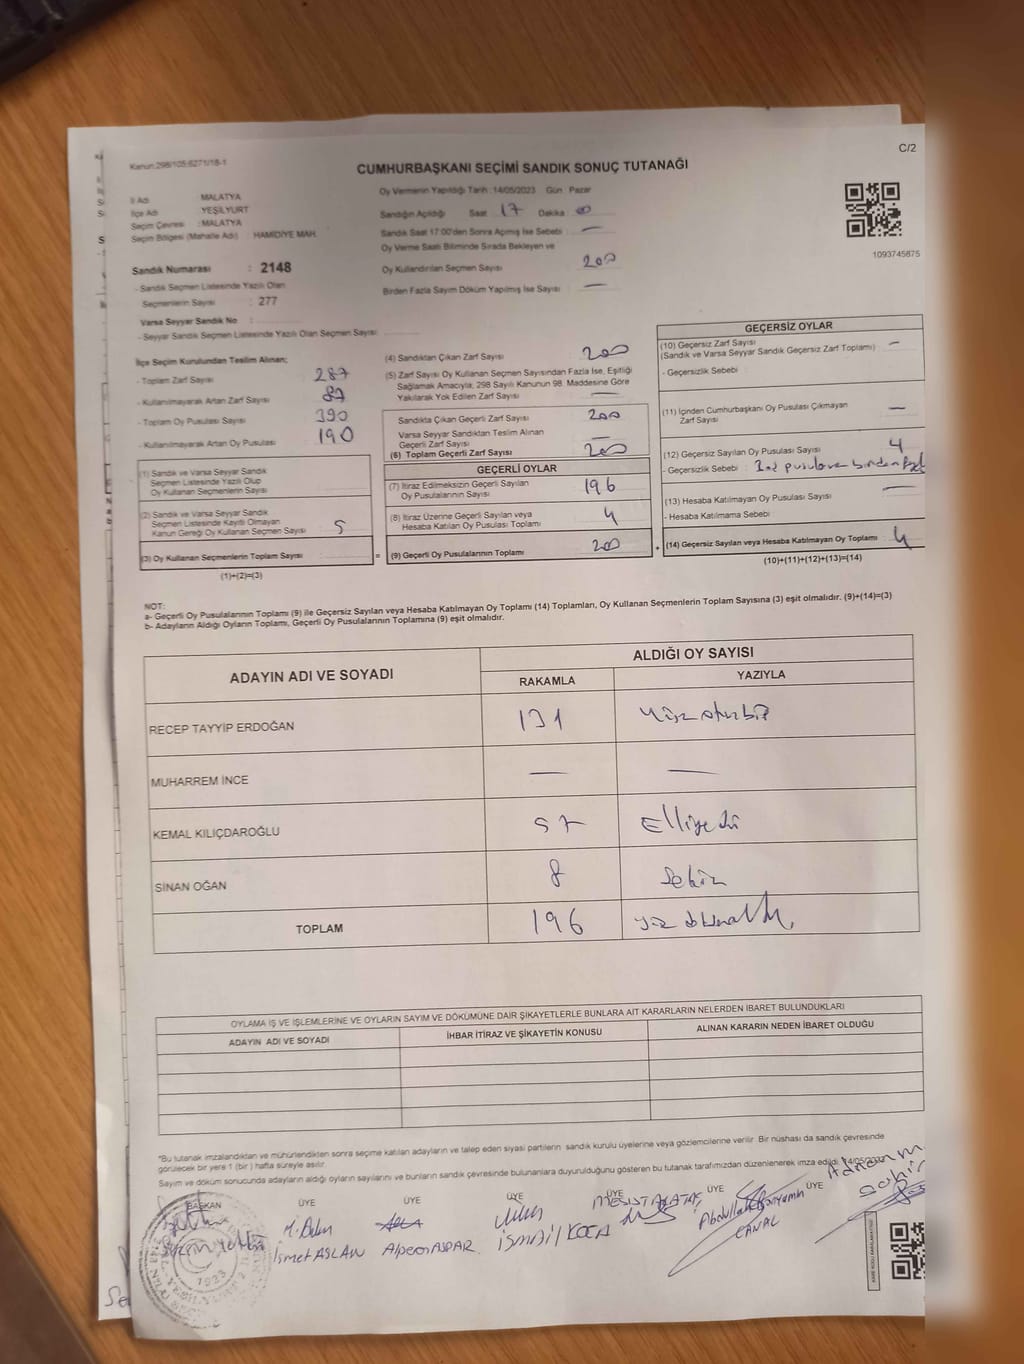 Kanun:298/105;6271/18-1
C/2
CUMHURBAŞKANI SEÇİMİ SANDIK SONUÇ TUTANAĞI
İl Adı : MALATYA
İlçe Adı : YEŞİLYURT
Seçim Çevresi : MALATYA
Seçim Bölgesi (Mahalle Adı) : HAMİDİYE MAH.
Sandık Numarası : 2148
- Sandık Seçmen Listesinde Yazılı Olan
Seçmenlerin Sayısı : 277
Varsa Seyyar Sandık No :
- Seyyar Sandık Seçmen Listesinde Yazılı Olan Seçmen Sayısı:
Oy Vermenin Yapıldığı Tarih : 14/05/2023 Gün : Pazar
Sandığın Açıldığı Saat : 17 Dakika : 00
Sandık Saat 17:00'den Sonra Açılmış İse Sebebi : —
Oy Verme Saati Bitiminde Sırada Bekleyen ve
Oy Kullandırılan Seçmen Sayısı : 200
Birden Fazla Sayım Döküm Yapılmış İse Sayısı : —
1093745875
İlçe Seçim Kurulundan Teslim Alınan;
- Toplam Zarf Sayısı : 287
- Kullanılmayarak Artan Zarf Sayısı : 87
- Toplam Oy Pusulası Sayısı : 390
- Kullanılmayarak Artan Oy Pusulası : 190
(1) Sandık ve Varsa Seyyar Sandık
Seçmen Listesinde Yazılı Olup
Oy Kullanan Seçmenlerin Sayısı
(2) Sandık ve Varsa Seyyar Sandık
Seçmen Listesinde Kayıtlı Olmayan
Kanun Gereği Oy Kullanan Seçmen Sayısı : 5
(3) Oy Kullanan Seçmenlerin Toplam Sayısı : =
(1)+(2)=(3)
(4) Sandıktan Çıkan Zarf Sayısı : 200
(5) Zarf Sayısı Oy Kullanan Seçmen Sayısından Fazla İse, Eşitliği
Sağlamak Amacıyla, 298 Sayılı Kanunun 98. Maddesine Göre
Yakılarak Yok Edilen Zarf Sayısı : —
Sandıkta Çıkan Geçerli Zarf Sayısı : 200
Varsa Seyyar Sandıktan Teslim Alınan
Geçerli Zarf Sayısı : —
(6) Toplam Geçerli Zarf Sayısı : 200
GEÇERLİ OYLAR
(7) İtiraz Edilmeksizin Geçerli Sayılan
Oy Pusulalarının Sayısı : 196
(8) İtiraz Üzerine Geçerli Sayılan veya
Hesaba Katılan Oy Pusulası Toplamı : 4
(9) Geçerli Oy Pusulalarının Toplamı : 200 +
GEÇERSİZ OYLAR
(10) Geçersiz Zarf Sayısı : —
(Sandık ve Varsa Seyyar Sandık Geçersiz Zarf Toplamı)
- Geçersizlik Sebebi :
(11) İçinden Cumhurbaşkanı Oy Pusulası Çıkmayan
Zarf Sayısı : —
(12) Geçersiz Sayılan Oy Pusulası Sayısı : 4
- Geçersizlik Sebebi :
(13) Hesaba Katılmayan Oy Pusulası Sayısı : —
- Hesaba Katılmama Sebebi :
(14) Geçersiz Sayılan veya Hesaba Katılmayan Oy Toplamı : 4
(10)+(11)+(12)+(13)=(14)
NOT:
a- Geçerli Oy Pusulalarının Toplamı (9) ile Geçersiz Sayılan veya Hesaba Katılmayan Oy Toplamı (14) Toplamları, Oy Kullanan Seçmenlerin Toplam Sayısına (3) eşit olmalıdır. (9)+(14)=(3)
b- Adayların Aldığı Oyların Toplamı, Geçerli Oy Pusulalarının Toplamına (9) eşit olmalıdır.
ADAYIN ADI VE SOYADI
ALDIĞI OY SAYISI
RAKAMLA YAZIYLA
RECEP TAYYİP ERDOĞAN 131 Yüzotuzbir
MUHARREM İNCE — —
KEMAL KILIÇDAROĞLU 57 Elliyedi
SİNAN OĞAN 8 Sekiz
TOPLAM 196 yüz doksanaltı
OYLAMA İŞ VE İŞLEMLERİNE VE OYLARIN SAYIM VE DÖKÜMÜNE DAİR ŞİKAYETLERLE BUNLARA AİT KARARLARIN NELERDEN İBARET BULUNDUKLARI
ADAYIN ADI VE SOYADI İHBAR İTİRAZ VE ŞİKAYETİN KONUSU ALINAN KARARIN NEDEN İBARET OLDUĞU
*Bu tutanak imzalandıktan ve mühürlendikten sonra seçime katılan adayların ve talep eden siyasi partilerin sandık kurulu üyelerine veya gözlemcilerine verilir. Bir nüshası da sandık çevresinde
görülecek bir yere 1 (bir) hafta süreyle asılır.
Sayım ve döküm sonucunda adayların aldığı oyların sayılarını ve bunların sandık çevresinde bulunanlara duyurulduğunu gösteren bu tutanak tarafımızdan düzenlenerek imza edildi. 14/05/2023
BAŞKAN ÜYE ÜYE ÜYE ÜYE ÜYE ÜYE
İsmet ASLAN Alperen ASPAR İSMAİL KOCA
CANAL
1923